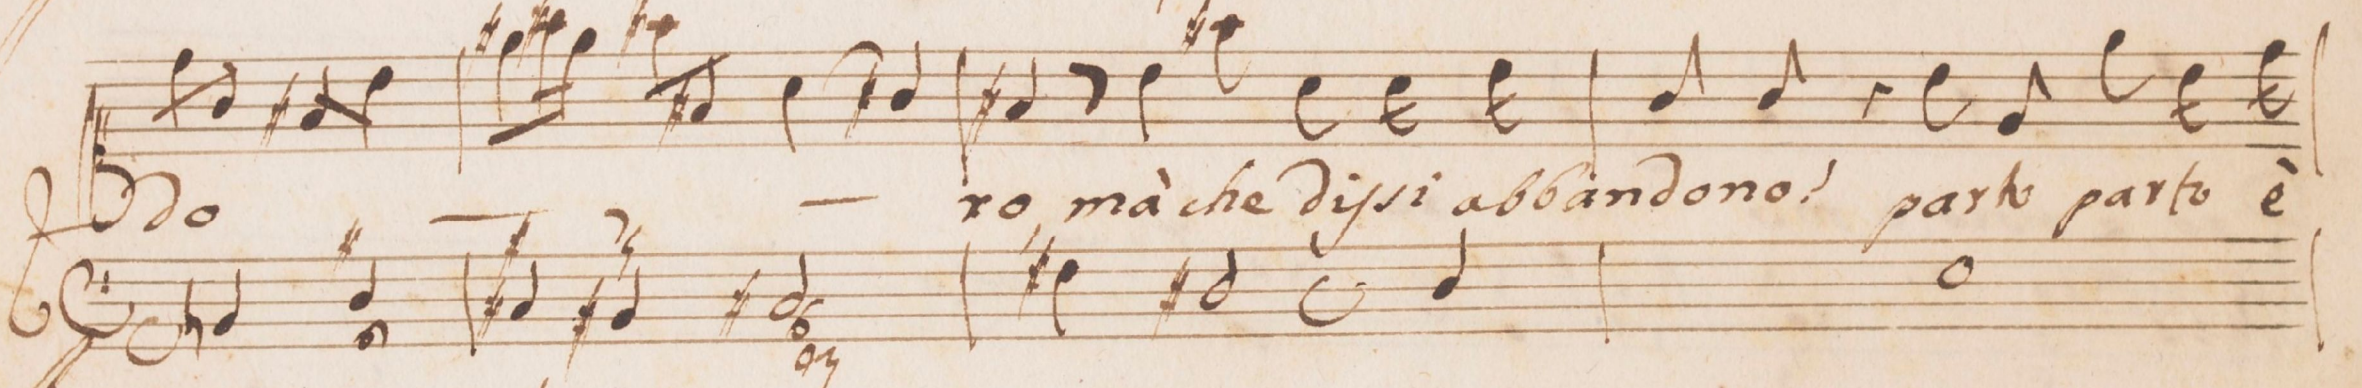 do — — ro mà che dissi abbandono! parto parto è